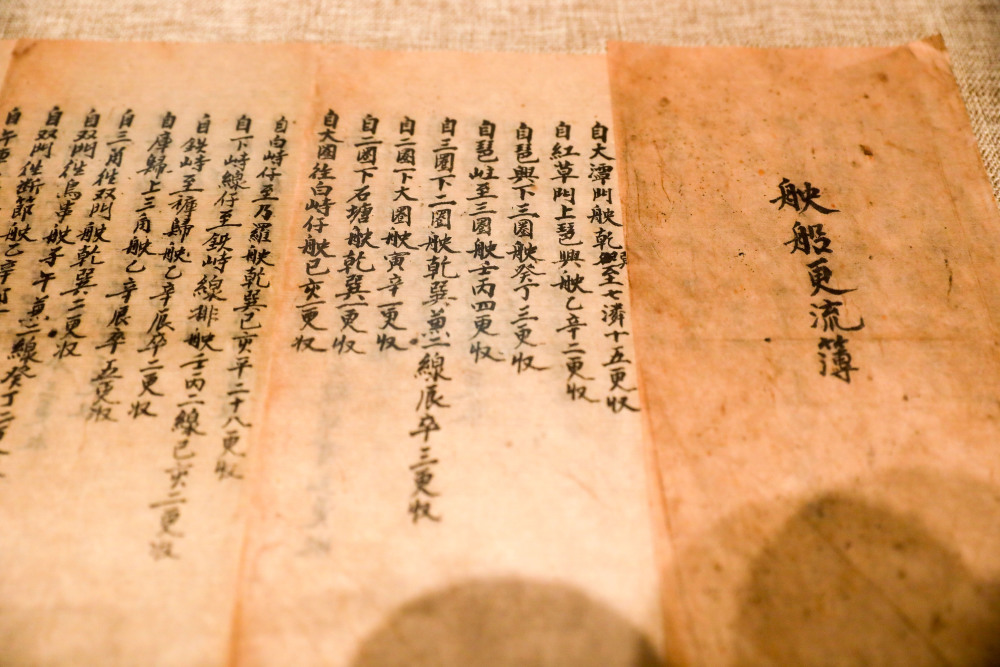 舦船更流簿
自大潭門舦乾巽至七洲十五更收
自紅草門上琶興舦乙辛二更收
自琶興下三圈舦癸丁三更收
自琶峙至三圈舦壬丙四更收
自三圈下二圈舦乾巽兼二線辰戌三更收
自二圈下大圈舦寅辛一更收
自二圈下石塘舦乾巽一更收
自大圈往白峙仔舦巳亥一更收
自白峙仔至乃羅舦乾巽巳亥平二十八更收
自下峙線仔至鉄峙線排舦壬丙二線巳亥二更收
自鉄峙至裤歸舦乙辛辰卒二更收
自庫歸上三角舦乙辛辰卒五更收
自三角往双門舦乾巽二更收
自双門往鳥事舦子午兼二線癸丁二更
自双門往断節舦乙辛
自午